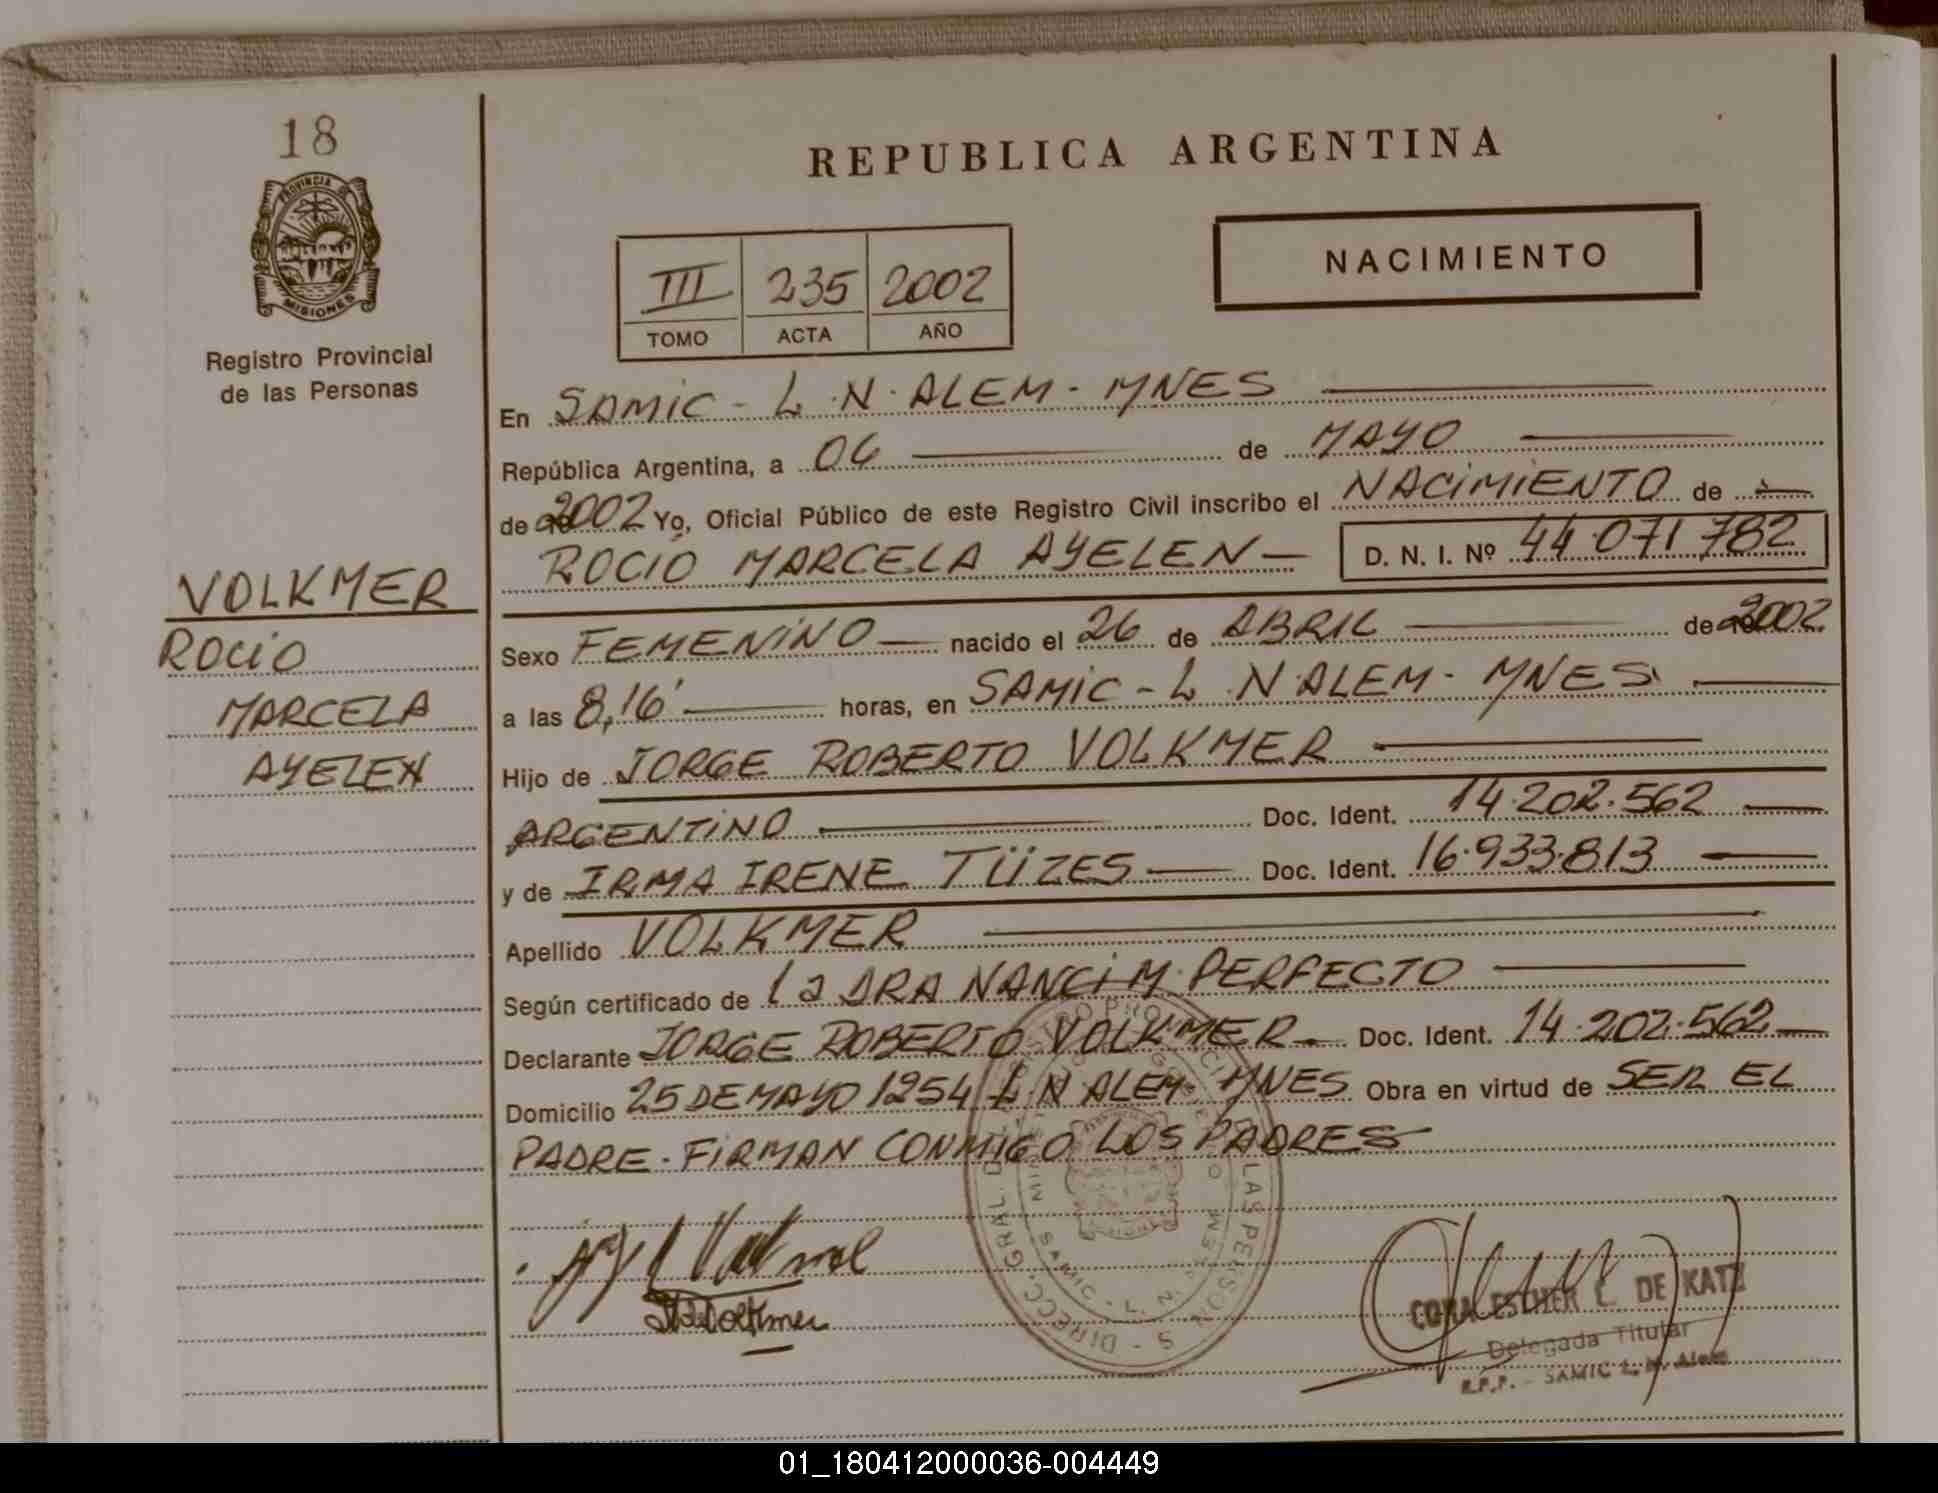 18
PROVINCIA DE
MISIONES
Registro Provincial
de las Personas
VOLKMER
ROCIO
MARCELA
AYELEN
REPUBLICA ARGENTINA
NACIMIENTO
III 235 2002
TOMO ACTA AÑO
En SAMIC - L. N. ALEM - MNES
República Argentina, a 06 de MAYO
de 2002 Yo, Oficial Público de este Registro Civil inscribo el NACIMIENTO de
ROCIO MARCELA AYELEN D. N. I. Nº 44.071.782
Sexo FEMENINO nacido el 26 de ABRIL de 2002
a las 8,16' horas, en SAMIC - L. N. ALEM - MNES
Hijo de JORGE ROBERTO VOLKMER
ARGENTINO Doc. Ident. 14.202.562
y de IRMA IRENE TÜZES Doc. Ident. 16.933.813
Apellido VOLKMER
Según certificado de la DRA NANCI M. PERFECTO
Declarante JORGE ROBERTO VOLKMER Doc. Ident. 14.202.562
Domicilio 25 DE MAYO 1254 L. N. ALEM - MNES Obra en virtud de SER EL
PADRE - FIRMAN CONMIGO LOS PADRES
DIRECC. GRAL. LAS PERSONAS
SAMIC - L. N. ALEM
Volkmer
CORA ESTHER C. DE KATZ
Delegada Titular
R.P.P. - SAMIC L. N. Alem
01_180412000036-004449